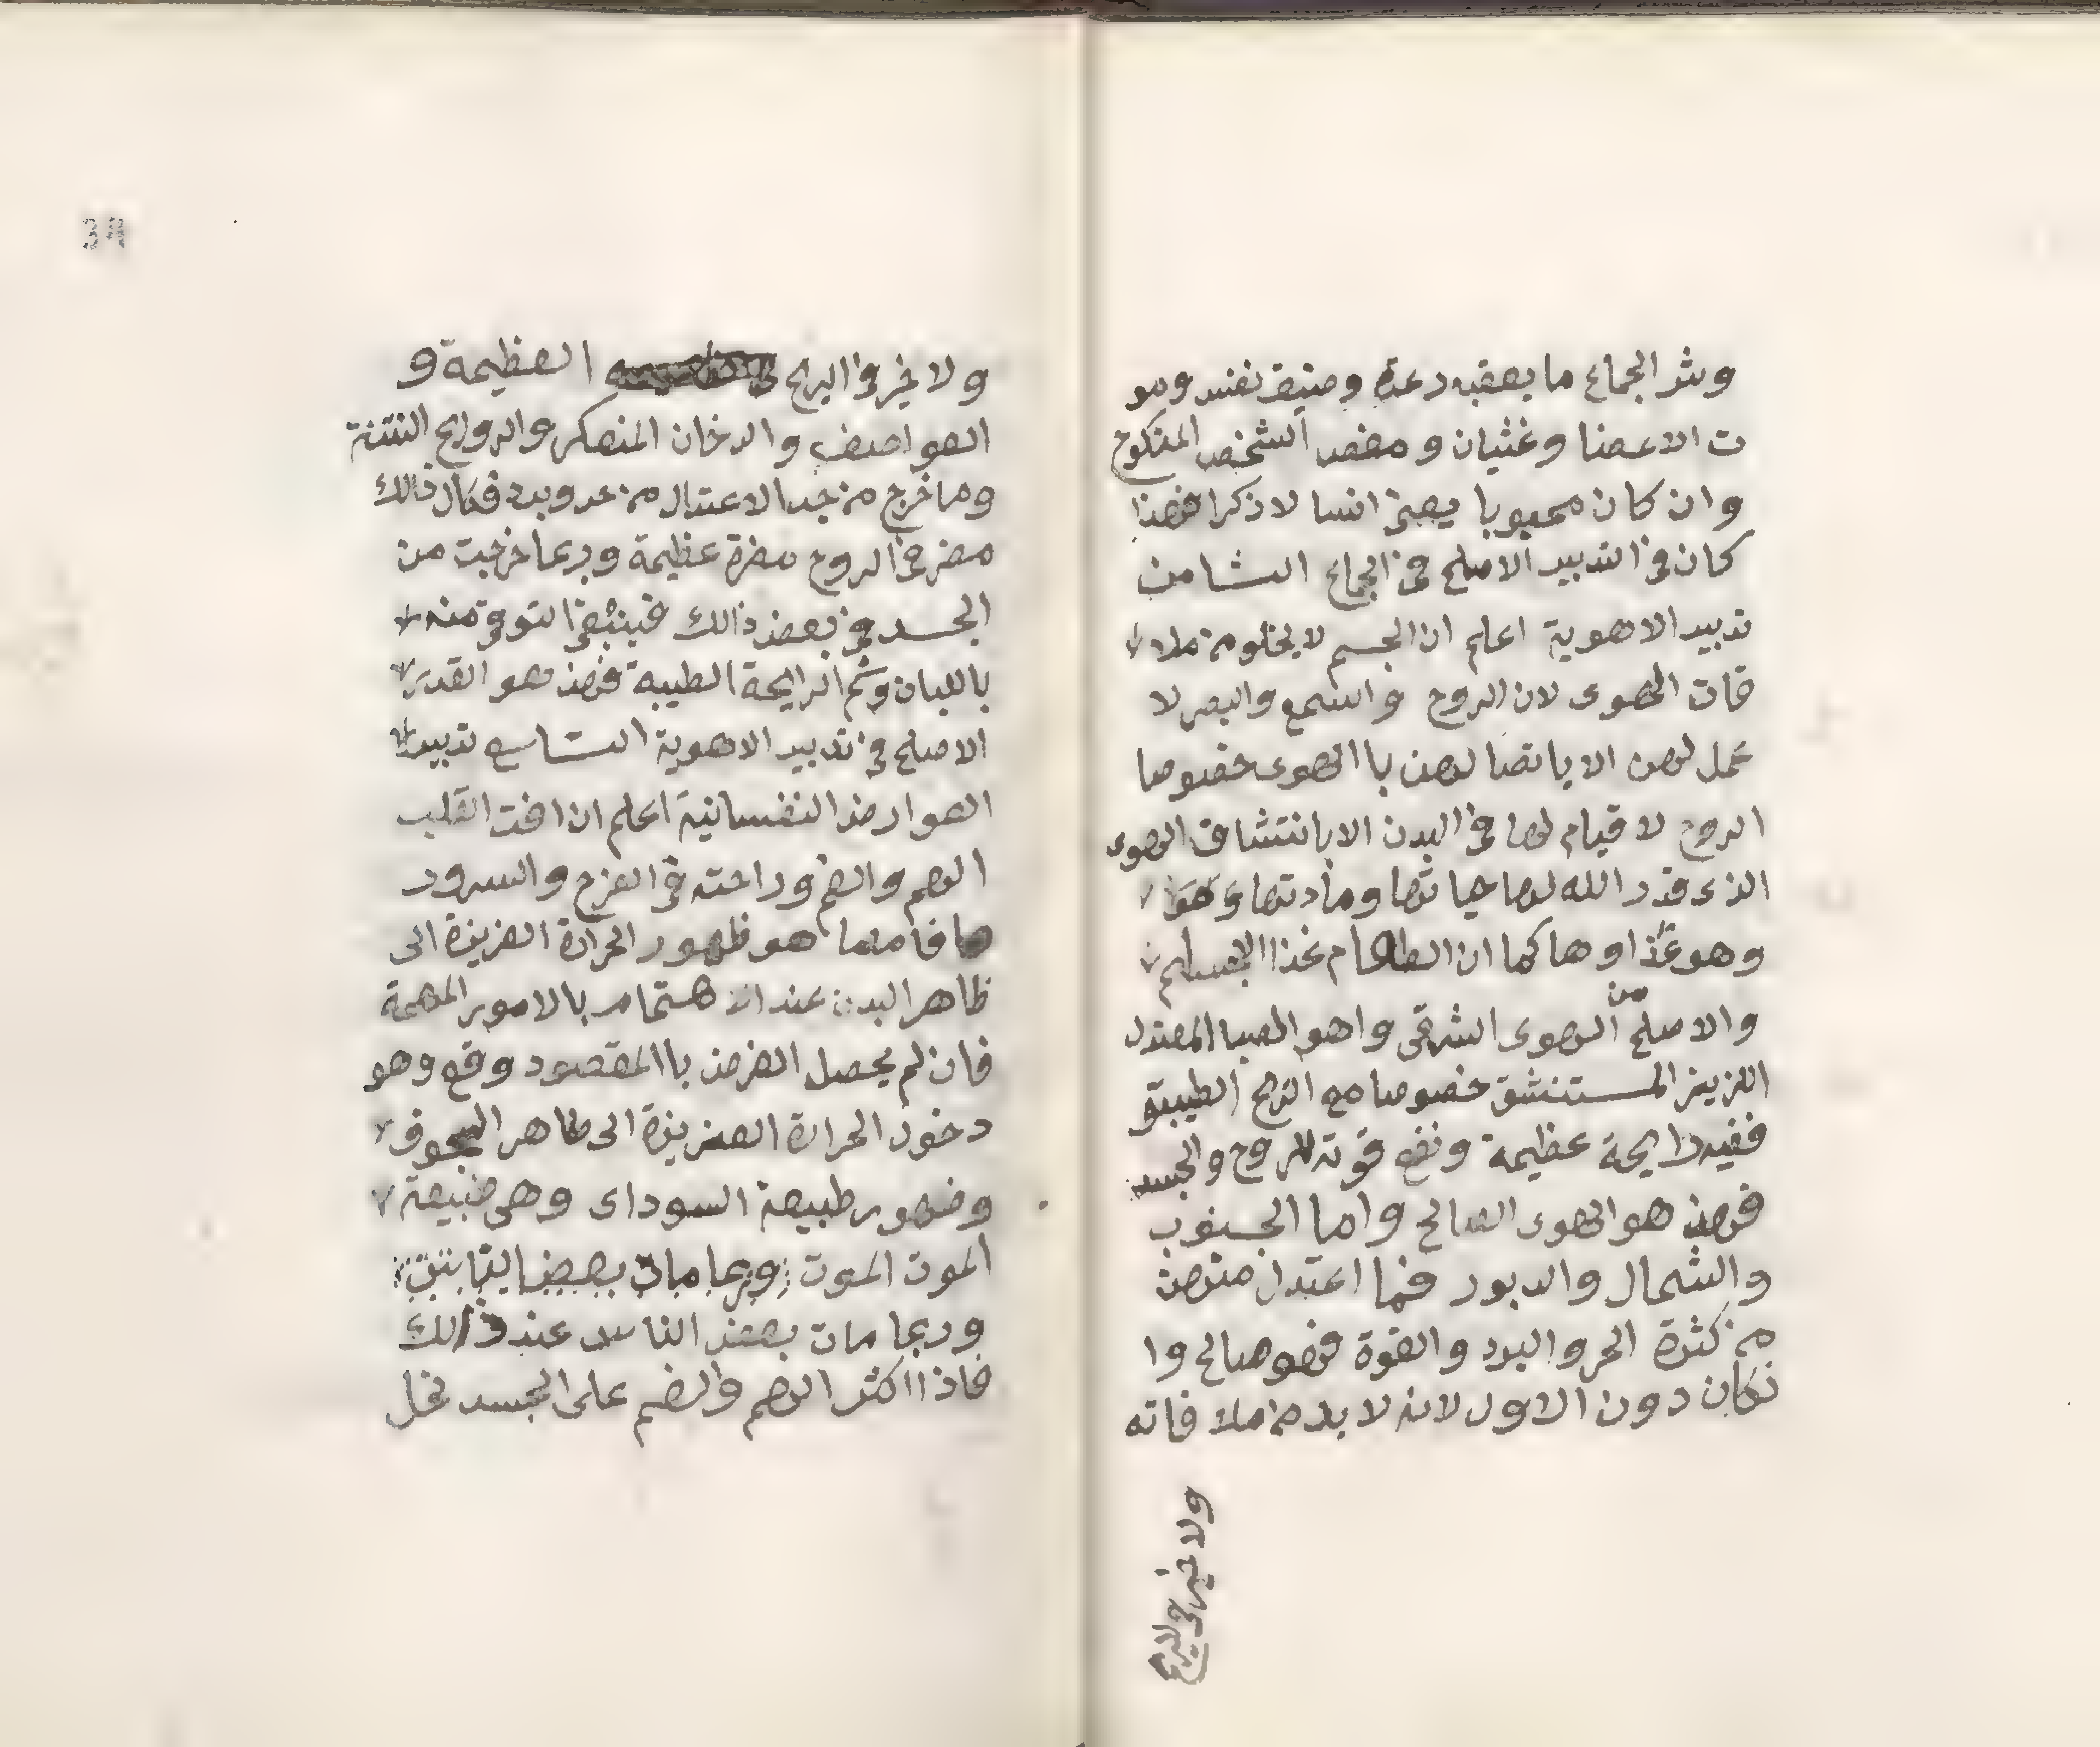 وشر الجماع ما يعقبه رعدة وضيق نفس ومو
ت الاعضا وغثيان و مغص الشخص المنكوح
وان كان محبوبا يعني انسا لا ذكرا فهذا
كان في التدبير الاصلح في الجماع الشامن
تدبير الاهوية اعلم ان الجسم لا يخلو من ملا
قات الهوى لان الروح والسمع والبصر لا
عمل لهن الا باتصا لهن باالهوى خصوصا
الروح لا قيام لها في البدن الا بانتشاق الهوى
الذى قدر الله لها حياتها ومادتها وهوا
وهو غذاوها كما ان الطعام غذا الاجسام
والاصلح من الهوى الشرقي واهو الصبا المعتدل
اللزيز المستنشق خصوصا مع الريح الطيبة و
ففيه رايحة عظيمة ونفع قوة للروح والجسد
فهذ هو الهوى الصالح واما الجنوب
والشمال والدبور فما اعتدل منهن
من كثرة الحر والبرد والقوة فهو صالح وا
نكان دون الاول لانه لا بد من ملا قاته
ولا خير في الريح
34
ولا خير في الريح العظيمة و
العواصف والدخان المنعكر والروايح النتنة
وما خرج من حد الاعتدال من حر وبرد فكل ذالك
مضر في الروح مضرة عظيمة وربما خرجت من
الجسد في بعض ذالك فينبغي التوقي منه
باللبان وشم الرايحة الطيبه فهذ هو القدر
الاصلح في تدبير الاهوية التاسع تدبير
العوارض النفسانية اعلم ان افت القلب
الهم والغم وراحته في الفرح والسرور
فامهما هو ظهور الحرارة الغريزة الى
ظاهر البدن عند الاهتمام بالامور المهمة
فان لم يحصل الغرض باالمقصود وقع وهو
دخول الحرارة الغريزة الى ظاهر الجوف
وضهور طبيعة السوداى وهي طبيعة
الموت الموت وربما مات بعض
وربما مات بعض الناس عند ذالك
فاذا اكثر الهم والغم على الجسد نحل